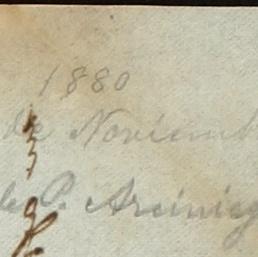 1880
de Noviemb
de P. Arciniég